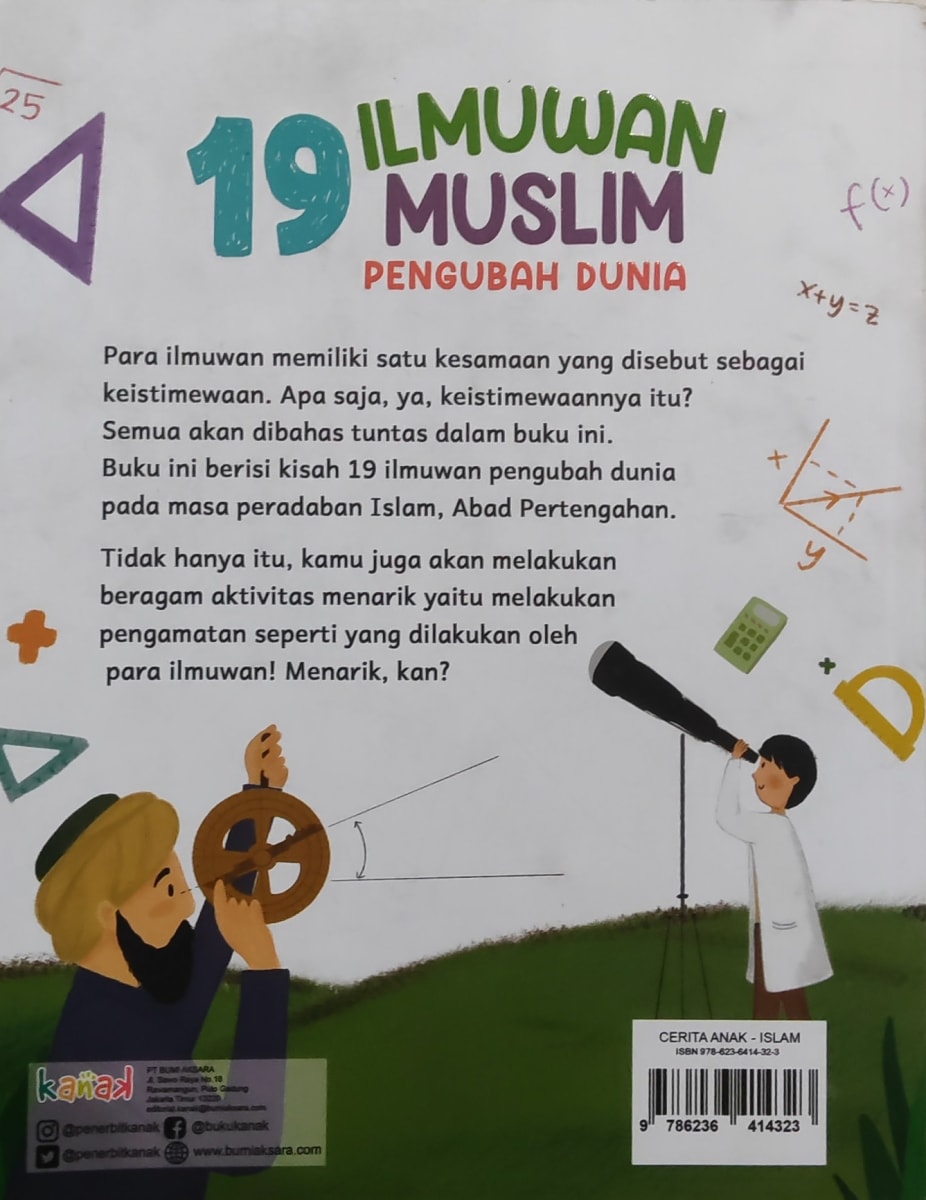 25
19 ILMUWAN
MUSLIM
PENGUBAH DUNIA
f(x)
x+y=z
Para ilmuwan memiliki satu kesamaan yang disebut sebagai
keistimewaan. Apa saja, ya, keistimewaannya itu?
Semua akan dibahas tuntas dalam buku ini.
Buku ini berisi kisah 19 ilmuwan pengubah dunia
pada masa peradaban Islam, Abad Pertengahan.
x
y
Tidak hanya itu, kamu juga akan melakukan
beragam aktivitas menarik yaitu melakukan
pengamatan seperti yang dilakukan oleh
para ilmuwan! Menarik, kan?
kanak
PT BUMI AKSARA
Jl. Sawo Raya No.18
Rawamangun, Pulo Gadung
Jakarta Timur 13220
editorial.kanak@bumiaksara.com
@penerbitkanak @bukukanak
@penerbitkanak www.bumiaksara.com
CERITA ANAK - ISLAM
ISBN 978-623-6414-32-3
9 786236 414323